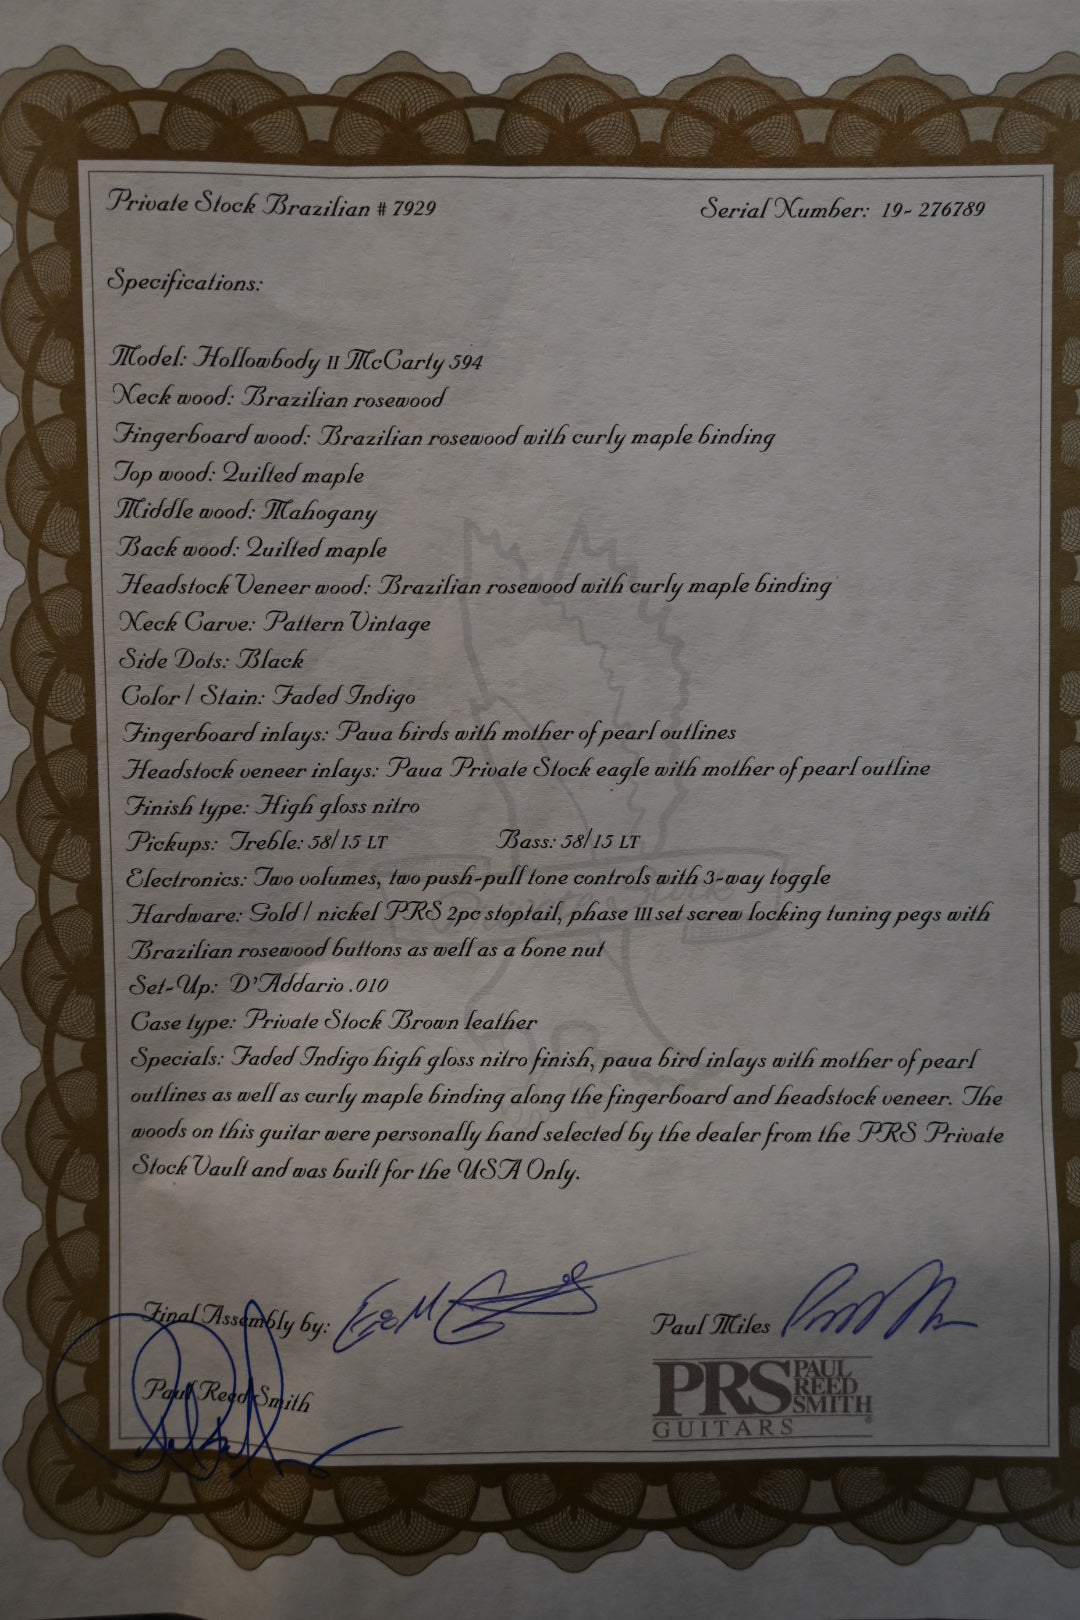 Private Stock Brazilian # 7929
Serial Number: 19- 276789
Specifications:
Model: Hollowbody II McCarty 594
Neck wood: Brazilian rosewood
Fingerboard wood: Brazilian rosewood with curly maple binding
Top wood: Quilted maple
Middle wood: Mahogany
Back wood: Quilted maple
Headstock Veneer wood: Brazilian rosewood with curly maple binding
Neck Carve: Pattern Vintage
Side Dots: Black
Color / Stain: Faded Indigo
Fingerboard inlays: Paua birds with mother of pearl outlines
Headstock veneer inlays: Paua Private Stock eagle with mother of pearl outline
Finish type: High gloss nitro
Pickups: Treble: 58/15 LT Bass: 58/15 LT
Electronics: Two volumes, two push-pull tone controls with 3-way toggle
Hardware: Gold / nickel PRS 2pc stoptail, phase III set screw locking tuning pegs with
Brazilian rosewood buttons as well as a bone nut
Set-Up: D'Addario .010
Case type: Private Stock Brown leather
Specials: Faded Indigo high gloss nitro finish, paua bird inlays with mother of pearl
outlines as well as curly maple binding along the fingerboard and headstock veneer. The
woods on this guitar were personally hand selected by the dealer from the PRS Private
Stock Vault and was built for the USA Only.
Final Assembly by:
Paul Miles
Paul Reed Smith
PRS PAUL REED SMITH
GUITARS